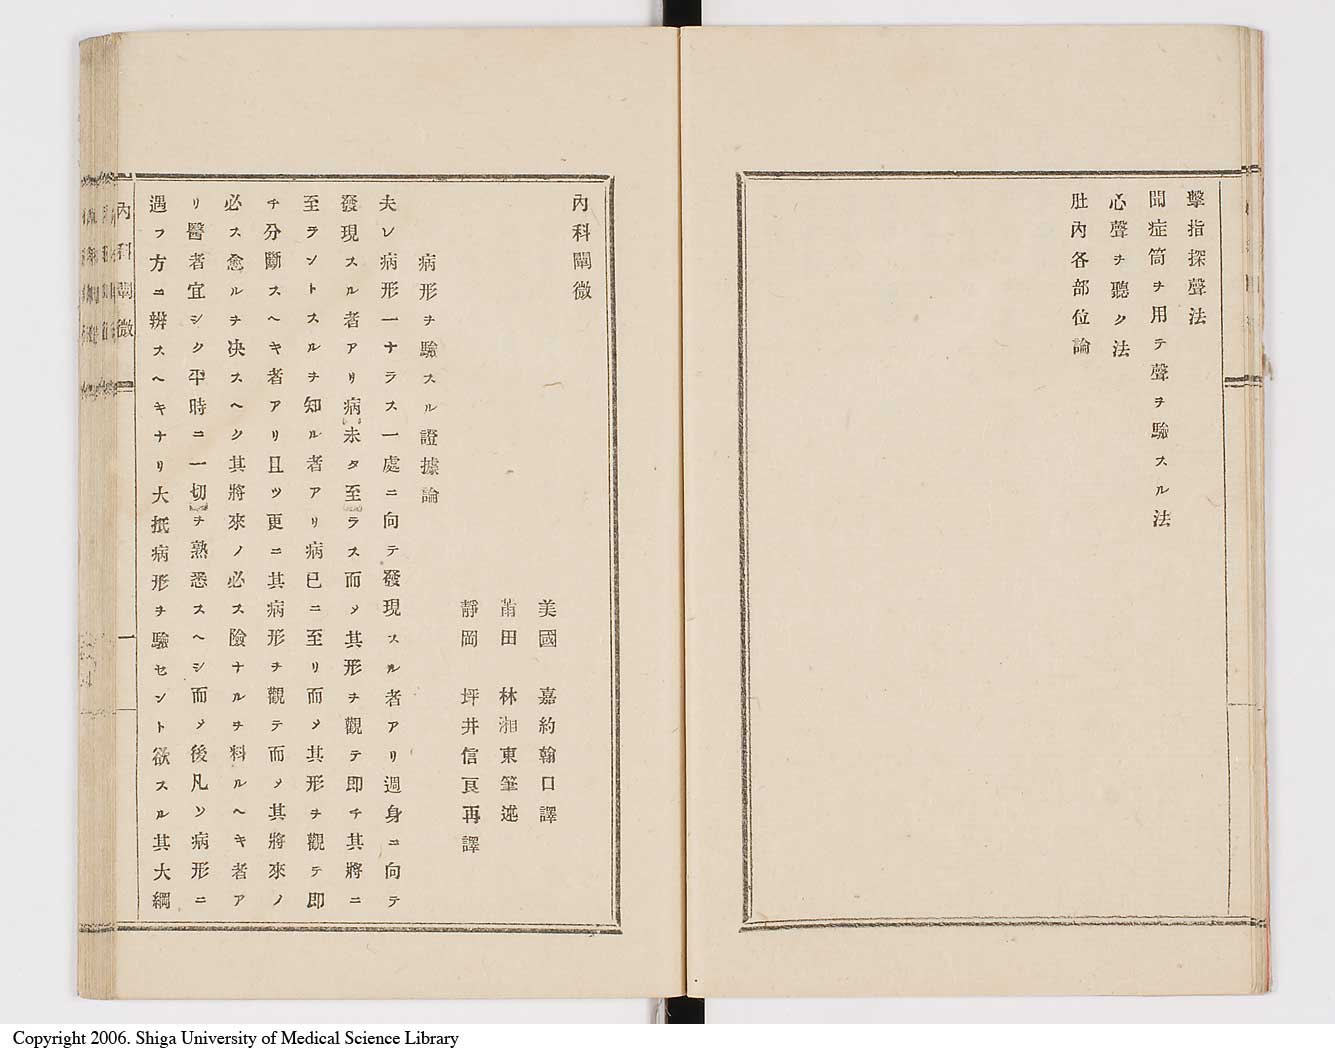 擊指探聲法
聞症筒ヲ用テ聲ヲ驗スル法
心聲ヲ聽ク法
肚內各部位論
內科闡微
美國　嘉約翰口譯
莆田　林湘東筆述
靜岡　坪井信良再譯
病形ヲ驗スル證據論
夫レ病形一ナラス一處ニ向テ發現スル者アリ週身ニ向テ
發現スル者アリ病未タ至ラス而〆其形ヲ觀テ卽チ其將ニ
至ラントスルヲ知ル者アリ病已ニ至リ而〆其形ヲ觀テ卽
チ分斷スヘキ者アリ且ツ更ニ其病形ヲ觀テ而〆其將來ノ
必ス愈ルヲ决スヘク其將來ノ必ス險ナルヲ料ルヘキ者ア
リ醫者宜シク平時ニ一切ヲ熟悉スヘシ而〆後凡ソ病形ニ
遇フ方ニ辨スヘキナリ大抵病形ヲ驗セント欲スル其大綱
內科闡微
一
Copyright 2006. Shiga University of Medical Science Library